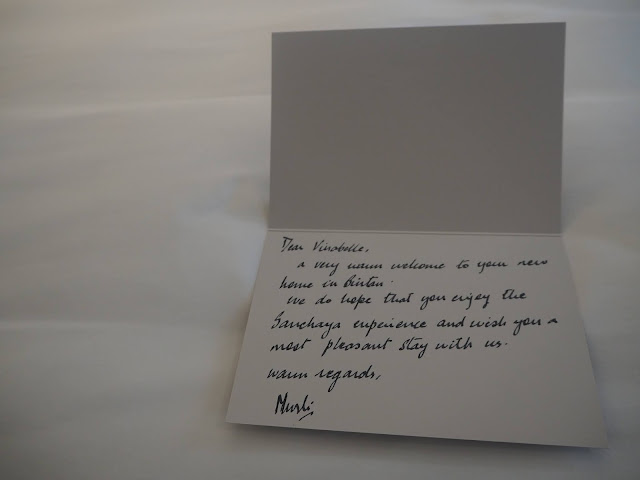 Dear Vinabelle,
a very warm welcome to your new
home in Bintan.
We do hope that you enjoy the
Sanchaya experience and wish you a
most pleasant stay with us.
warm regards,
Murli